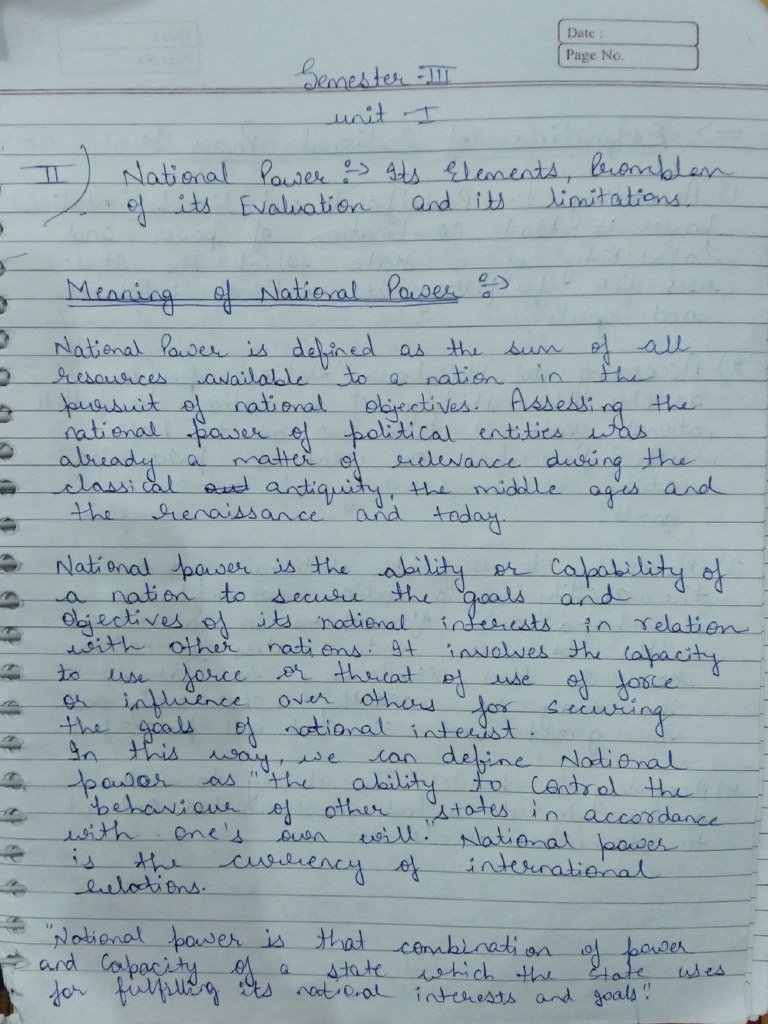 Date :
Page No.
Semester - III
unit - I
II) National Power :-> Its Elements, Bromblem
of its Evaluation and its limitations.
Meaning of National Power :->
National Power is defined as the sum of all
resources available to a nation in the
pursuit of national objectives. Assessing the
national power of political entities was
already a matter of relevance during the
classical antiquity, the middle ages and
the renaissance and today.
National power is the ability or Capability of
a nation to secure the goals and
objectives of its national interests in relation
with other nations. It involves the capacity
to use force or threat of use of force
or influence over others for securing
the goals of national interist.
In this way, we can define National
power as "the ability to Control the
behaviour of other states in accordance
with one's own will." National power
is the currency of international
relations.
"National power is that combination of power
and Capacity of a state which the state uses
for fulfilling its national interests and goals".